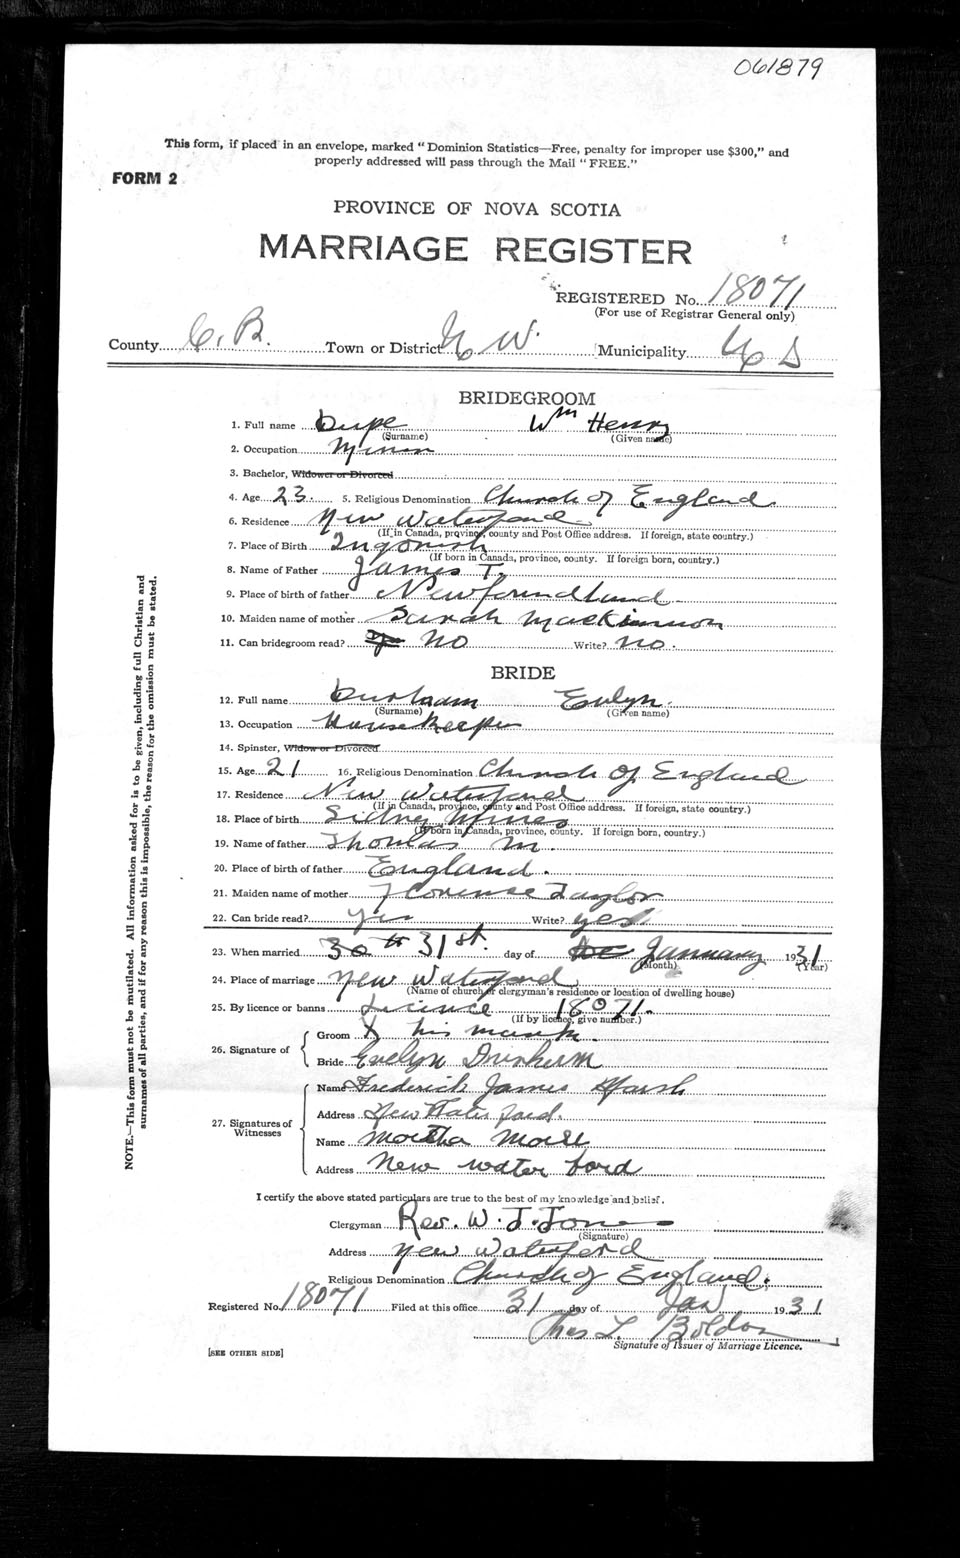 061879
This form, if placed in an envelope, marked "Dominion Statistics—Free, penalty for improper use $300," and
properly addressed will pass through the Mail "FREE."
FORM 2
PROVINCE OF NOVA SCOTIA
MARRIAGE REGISTER
REGISTERED No. 18071
(For use of Registrar General only)
County C. B. Town or District N W. Municipality
BRIDEGROOM
1. Full name Dupe Wm Henry
(Surname) (Given name)
2. Occupation Miner
3. Bachelor, Widower or Divorced
4. Age 23. 5. Religious Denomination Church of England
6. Residence New Waterford
(If in Canada, province, county and Post Office address. If foreign, state country.)
7. Place of Birth Ingonish
(If born in Canada, province, county. If foreign born, country.)
8. Name of Father James T.
9. Place of birth of father Newfoundland
10. Maiden name of mother Sarah MacKinnon
11. Can bridegroom read? No Write? no.
BRIDE
12. Full name Durham Evlyn.
(Surname) (Given name)
13. Occupation Housekeeper
14. Spinster, Widow or Divorced
15. Age 21 16. Religious Denomination Church of England
17. Residence New Waterford
(If in Canada, province, county and Post Office address. If foreign, state country.)
18. Place of birth Sidney Mines
(If born in Canada, province, county. If foreign born, country.)
19. Name of father Thomas M.
20. Place of birth of father England.
21. Maiden name of mother Florense Taylor
22. Can bride read? yes Write? yes
23. When married 30th 31st day of January 1931
(Month) (Year)
24. Place of marriage New Waterford
(Name of church or clergyman's residence or location of dwelling house)
25. By licence or banns Licince 18071.
(If by licence, give number.)
26. Signature of
Groom X his mark.
Bride Evelyn Durham
27. Signatures of Witnesses
Name Frederick James Marsh
Address New Waterford.
Name Martha
Address New water ford
NOTE.—This form must not be mutilated. All information asked for is to be given, including full Christian and
surnames of all parties, and if for any reason this is impossible, the reason for the omission must be stated.
I certify the above stated particulars are true to the best of my knowledge and belief.
Clergyman Rev. W. J. Jones
(Signature)
Address New Waterford
Religious Denomination Church of England.
Registered No. 18071 Filed at this office 31 day of Jan 1931
Thos L. Boldon
Signature of Issuer of Marriage Licence.
[SEE OTHER SIDE]